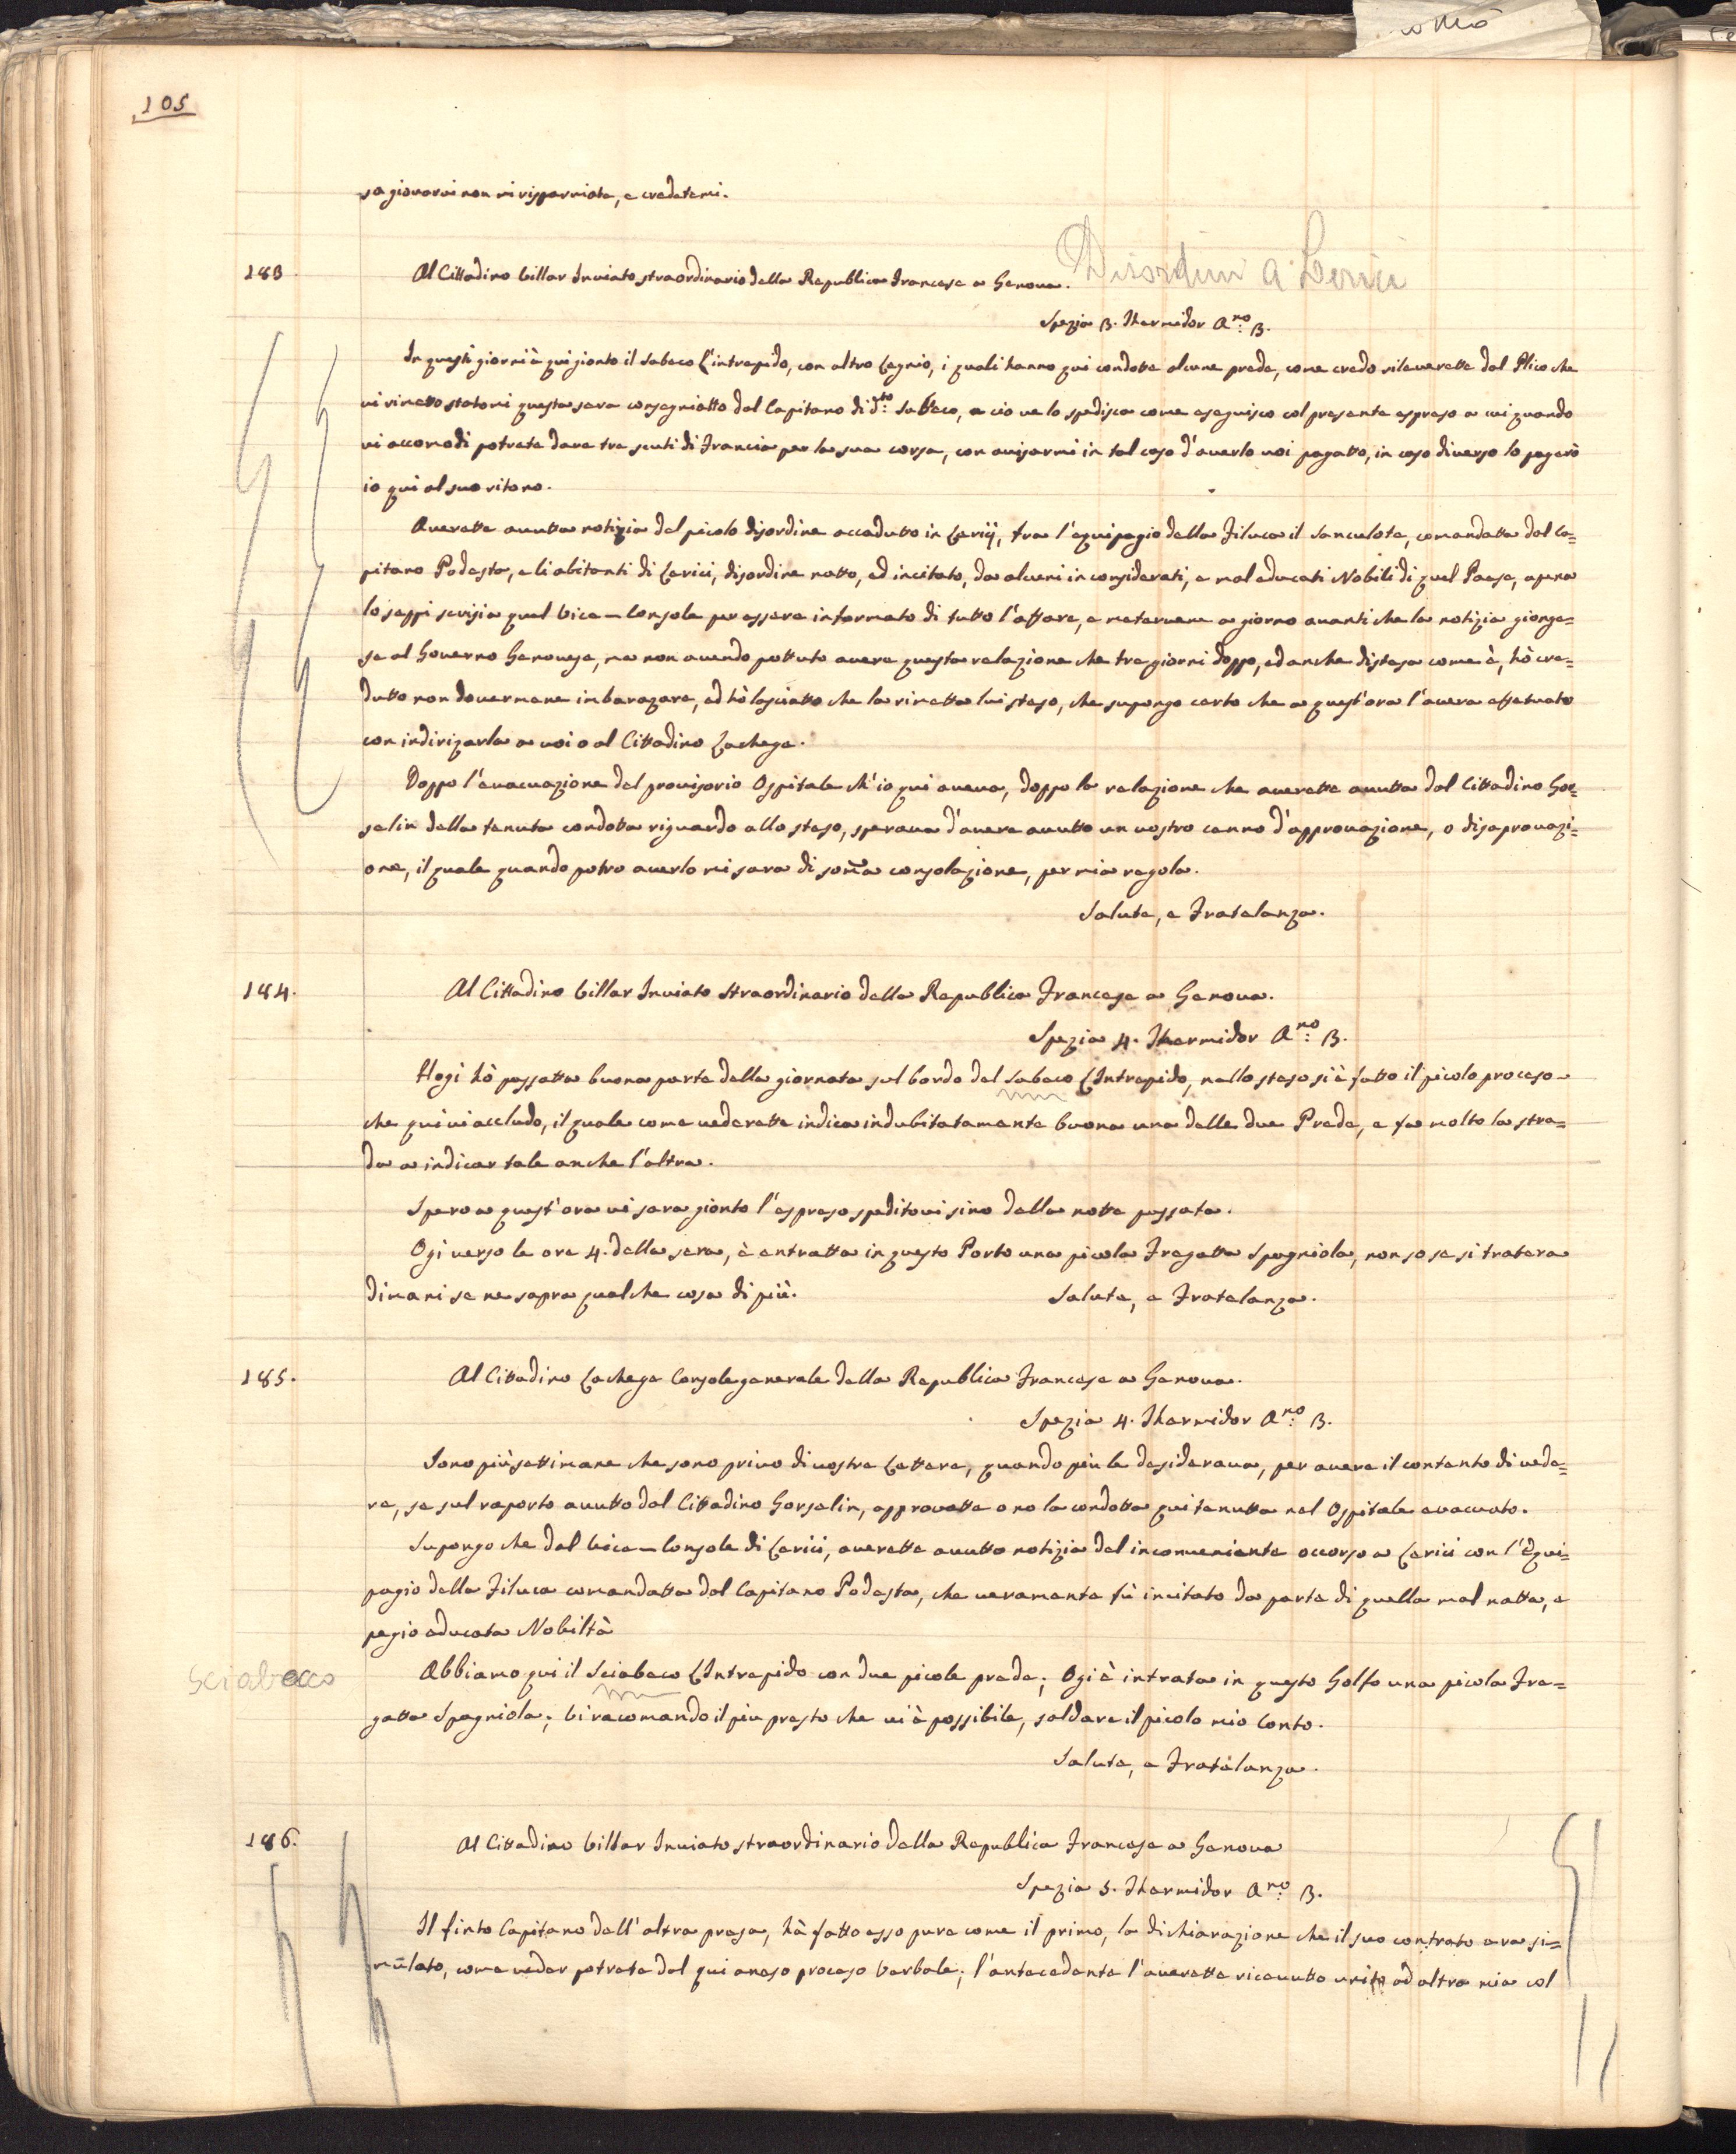 105
sa giovarvi non mi risparmiate, e credetemi.
183
Al Cittadino Villar Inviato straordinario della Republica Francese a Genova.
Disordini a Lerici
Spezia 3. Thermidor Anno 3.
In questi giorni è qui gionto il Sabeco l'intrepido, con altro Legnio, i quali hanno qui condotte alcune prede, come credo rileverette dal Plico che
vi rimetto statomi questa sera consegniatto dal Capitano di dto Sabeco, a cio ve lo spedisca come eseguisco col presente espreso a cui quando
vi accomodi potrete dare tre scuti di Francia per la sua corsa, con avisarmi in tal caso d'averlo voi pagatto, in caso diverso lo pagerò
io qui al suo ritorno.
Averette avutta notizia del picolo disordine accadutto in Lerici, tra l'equipagio della Filuca il Sanculote, comandatta dal Ca=
pitano Podesta, e li abitanti di Lerici, disordine natto, ed incitato, da alcuni inconsiderati, e mal educati Nobili di quel Paese, apena
lo seppi scrisi a quel Vice-Console per essere informato di tutto l'affare, e metervene a giorno avanti che la notizia gionge=
se al Governo Genovese, ma non avendo pottuto avere questa relazione che tre giorni doppo, ed anche distesa come è, hò cre=
dutto non dovermene imbarazare, ed hò lasciatto che la rimetta lui steso, che supongo certo che a quest'ora l'avera effetuato
con indirizarla a voi o al Cittadino Lachege.
Doppo l'evacuazione del provisorio Ospitale ch'io qui aveva, doppo la relazione che averette avutta dal Cittadino Gor=
salin della tenuta condotta riguardo allo steso, sperava d'avere avutto un vostro cenno d'approvazione, o disaprovazi=
one, il quale quando potro averlo mi sara di soma consolazione, per mia regola.
Salute, e Fratelanza.
184.
Al Cittadino Villar Inviato Straordinario della Republica Francese a Genova.
Spezia 4. Thermidor Anno 3.
Hogi hò passatta buona parte della giornata sul bordo del Sabeco L'Intrepido, nello steso si è fatto il picolo proceso
che qui vi accludo, il quale come vederette indica indubitatamente buona una delle due Prede, e fa molto la stra=
da a indicar tale anche l'altra.
Spero a quest'ora vi sara gionto l'espreso speditovi sino dalla notte passata.
Ogi verso le ore 4. della sera, è entratta in questo Porto una picola Fregatta Spagniola, non so se si tratera
dimani se ne sapra qualche cosa di più.
Salute, e Fratelanza.
185.
Al Cittadino Lachege Console generale della Republica Francese a Genova.
Spezia 4. Thermidor Anno 3.
Sono più settimane che sono privo di vostre Lettere, quando più le desiderava, per avere il contento di vede=
re, se sul raporto avutto dal Cittadino Gorsalin, approvatte o no la condotta qui tenutta nel Ospitale evacuato.
Supongo che dal Vice-Console di Lerici, averette avutto notizia del inconveniente occorso a Lerici con l'Equi=
pagio della Filuca comandatta dal Capitano Podesta, che veramente fù incitato da parte di quella mal natta, e
pegio educata Nobiltà
Sciabecco
Abbiamo qui il Sciabeco L'Intrepido con due picole prede; Ogi è intrata in questo Golfo una picola Fre=
gatta Spagniola; Vi racomando il più presto che vi è possibile, saldare il picolo mio Conto.
Salute, e Fratelanza.
186.
Al Cittadino Villar Inviato straordinario della Republica Francese a Genova
Spezia 5. Thermidor Anno 3.
Il finto Capitano dell'altra presa, hà fatto esso pure come il primo, la dichiarazione che il suo contrato era si=
mulato, come veder potrete dal qui aneso proceso Verbale; l'antecedente l'averette ricevutto unito ad altra mia col